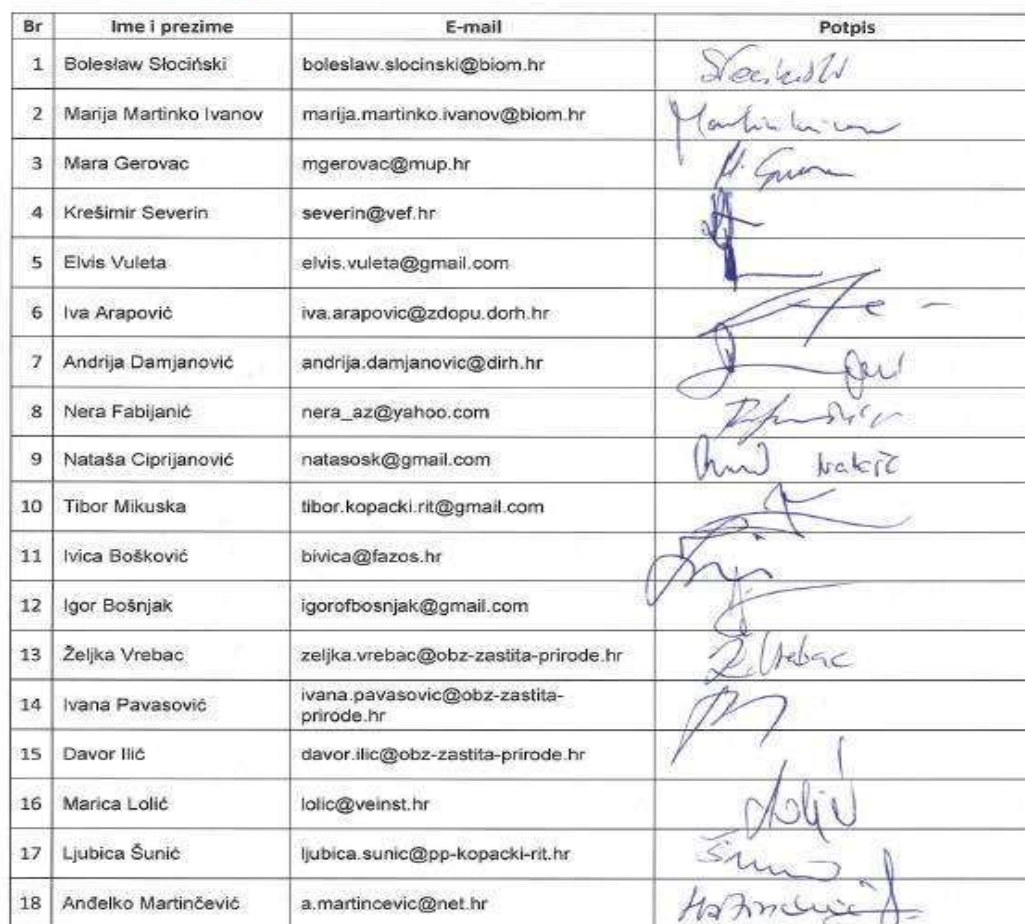 Br Ime i prezime E-mail Potpis
1 Bolesław Słociński boleslaw.slocinski@biom.hr
2 Marija Martinko Ivanov marija.martinko.ivanov@biom.hr
3 Mara Gerovac mgerovac@mup.hr
4 Krešimir Severin severin@vef.hr
5 Elvis Vuleta elvis.vuleta@gmail.com
6 Iva Arapović iva.arapovic@zdopu.dorh.hr
7 Andrija Damjanović andrija.damjanovic@dirh.hr
8 Nera Fabijanić nera_az@yahoo.com
9 Nataša Ciprijanović natasosk@gmail.com
10 Tibor Mikuska tibor.kopacki.rit@gmail.com
11 Ivica Bošković bivica@fazos.hr
12 Igor Bošnjak igorofbosnjak@gmail.com
13 Željka Vrebac zeljka.vrebac@obz-zastita-prirode.hr Ž. Vrebac
14 Ivana Pavasović ivana.pavasovic@obz-zastita-
prirode.hr
15 Davor Ilić davor.ilic@obz-zastita-prirode.hr
16 Marica Lolić lolic@veinst.hr Lolić
17 Ljubica Šunić ljubica.sunic@pp-kopacki-rit.hr
18 Anđelko Martinčević a.martincevic@net.hr